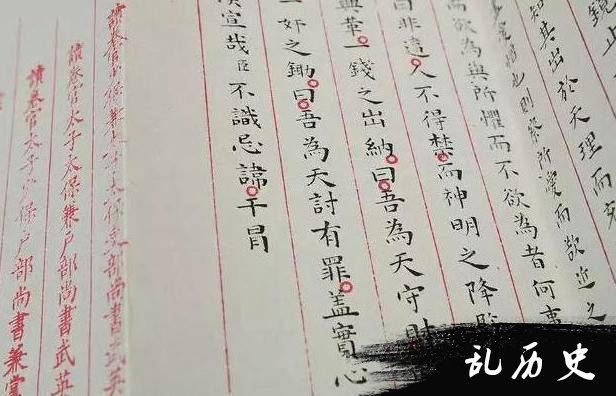 鏡上
知其出於天理而充
所
而欲為與所懼而不欲為者何事
曰非遺人不得禁而神明之降
與革一錢之出納曰吾為天守財
一奸之鋤曰吾為天討有罪蓋實心
宣哉臣不識忌諱干冒
讀卷官 部尚書武英
讀卷官太子太保兼戶部尚書武英
讀卷官太子少保戶部尚書兼掌
乱历史